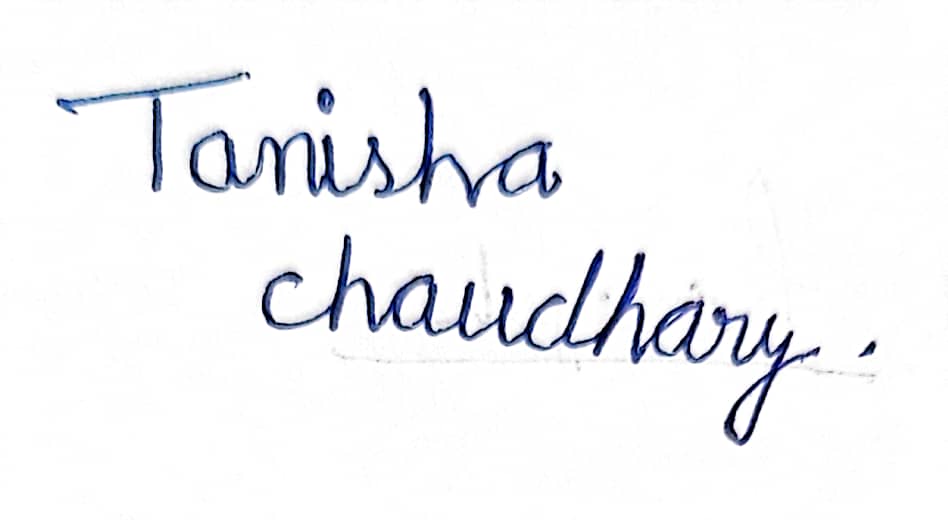 Tanisha
chaudhary.